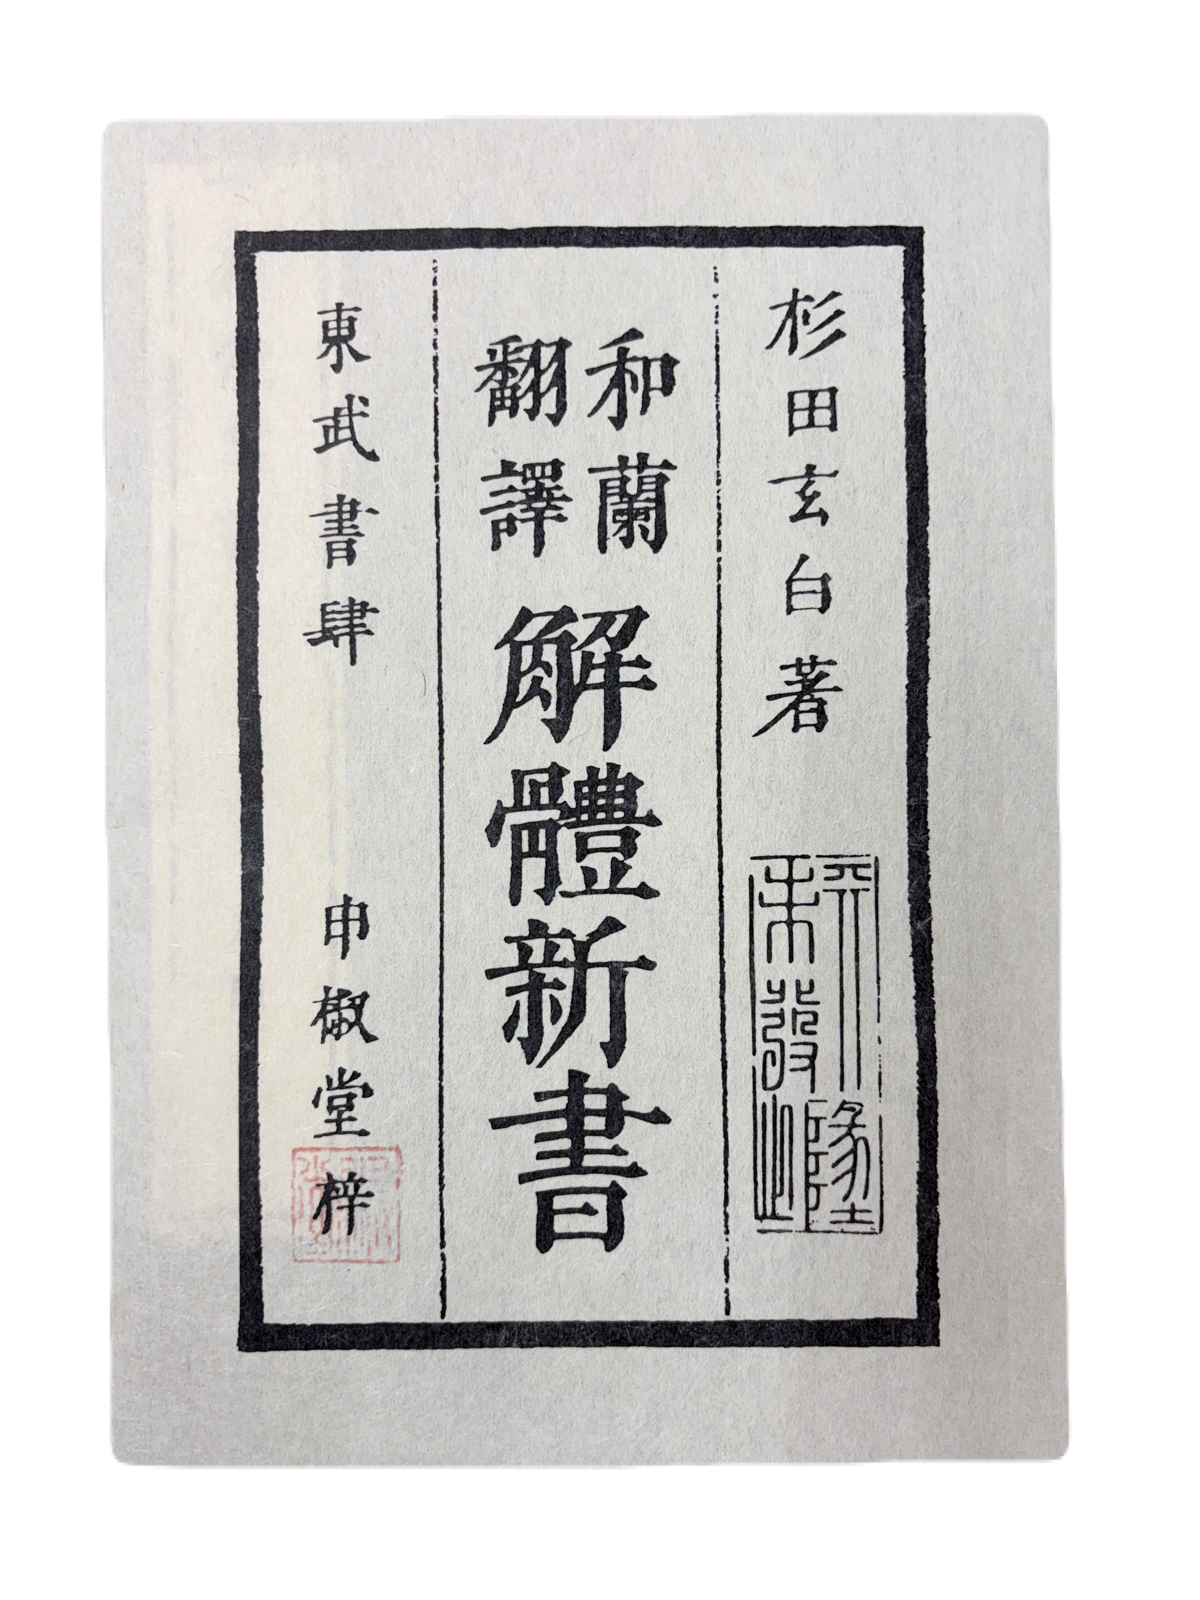 杉田玄白著
和蘭
翻譯
解體新書
東武書肆 申椒堂梓